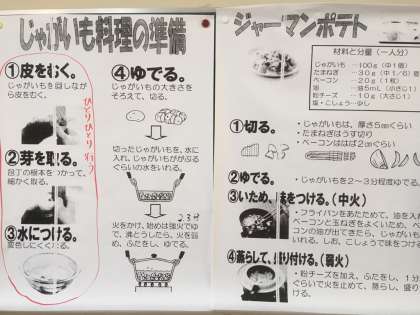 じゃがいも料理の準備
①皮をむく。
じゃがいもを回しながら皮をむく。
②芽を取る。
包丁の角を使って、
細かく取る。
③水につける。
変色しにくくなる。
④ゆでる。
じゃがいもの大きさを
そろえて、切る。
切ったじゃがいもを、水に
入れ、じゃがいもがかぶる
ぐらいの水をいれる。
2,3分
火をかけ、始めは強火でゆ
で、沸とうしたら、火を弱
め、ふたをし、ゆでる。
ジャーマンポテト
材料と分量(一人分)
じゃがいも ―100g(中1個)
たまねぎ ―30g(中1/6)
ベーコン ―20g(1枚)
油 ―5mL(小さじ1)
粉チーズ ―10g(小さじ1)
塩・こしょう―少し
①切る。
・じゃがいもは、厚さ5mmぐらい
・たまねぎはうす切り
・ベーコンははば2cmぐらい
②ゆでる。
・じゃがいもを2~3分程度ゆでる。
③いため、味をつける。(中火)
・フライパンをあたためて、油を入れ
ベーコンと玉ねぎをよくいため、ベー
コンの油が出てきたら、じゃがいも
いれる。しお、こしょうで味をつける
④蒸らして、盛り付ける。(弱火)
・粉チーズを加え、ふたをし、1分
ぐらいで火を止めて、蒸らし、盛り
ける。